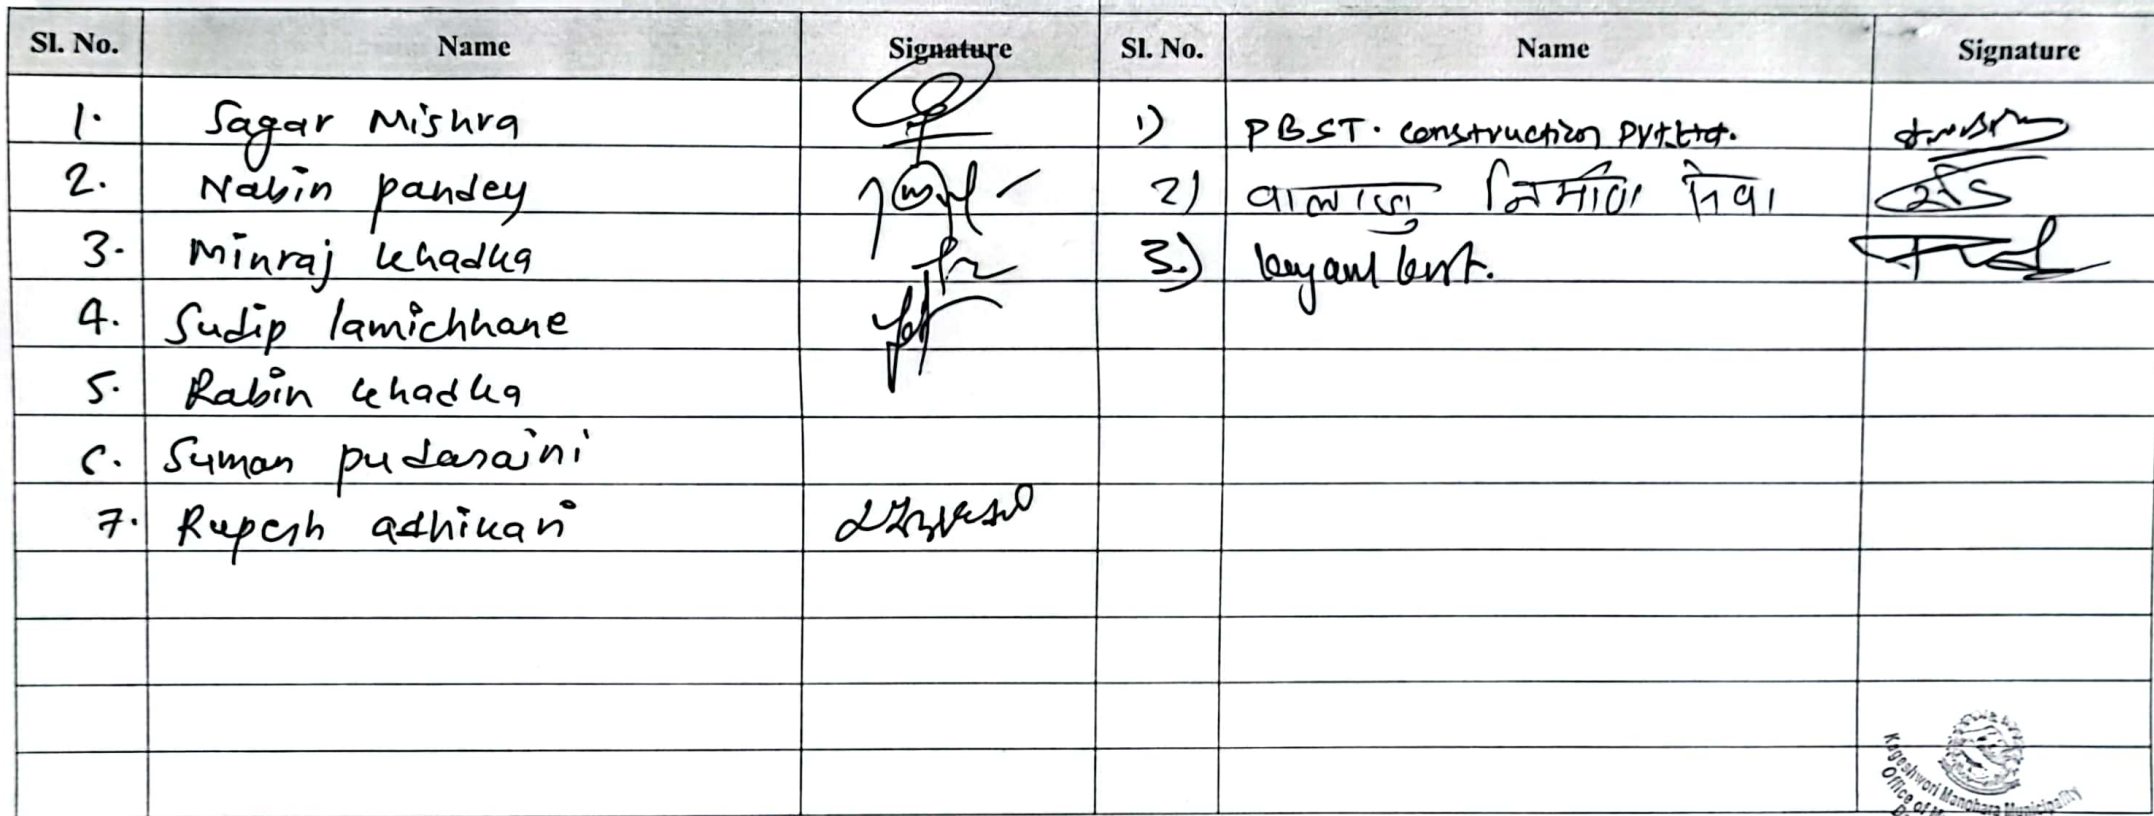 Sl. No. Name Signature Sl. No. Name Signature
1. Sagar Mishra 1) PBST. construction Pvt.Ltd.
2. Nabin pandey 2) निर्माण सेवा
3. Minraj khadka 3.)
4. Sudip lamichhane
5. Rabin khadka
6. Suman pudasaini
7. Rupesh adhikari
Kageshwori Manohara Municipality
Office of